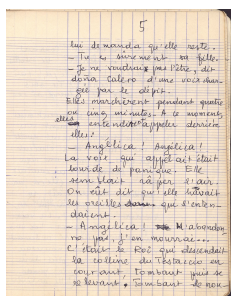 5
lui demanda qu'elle reste.
_ Tu es sûrement sa fille.
_ Je ne voudrais pas l'être, dit
doña Calero d'une voix char-
gée par le dépit.
Elles marchèrent pendant quatre
ou cinq minutes. A ce moment,
elles entendirent appeler derrière
elles :
_ Angélica ! Angélica !
La voix qui appelait était
lourde de panique. Elle
semblait râper l'air.
On eût dit qu'elle
les oreilles qui l'enten-
daient.
_ Angélica ! M'abandon-
ne pas, j'en mourrai...
C'était le Roi qui descendait
la colline du Testaccio en
courant, tombant puis se
relevant. Tombant de nou-